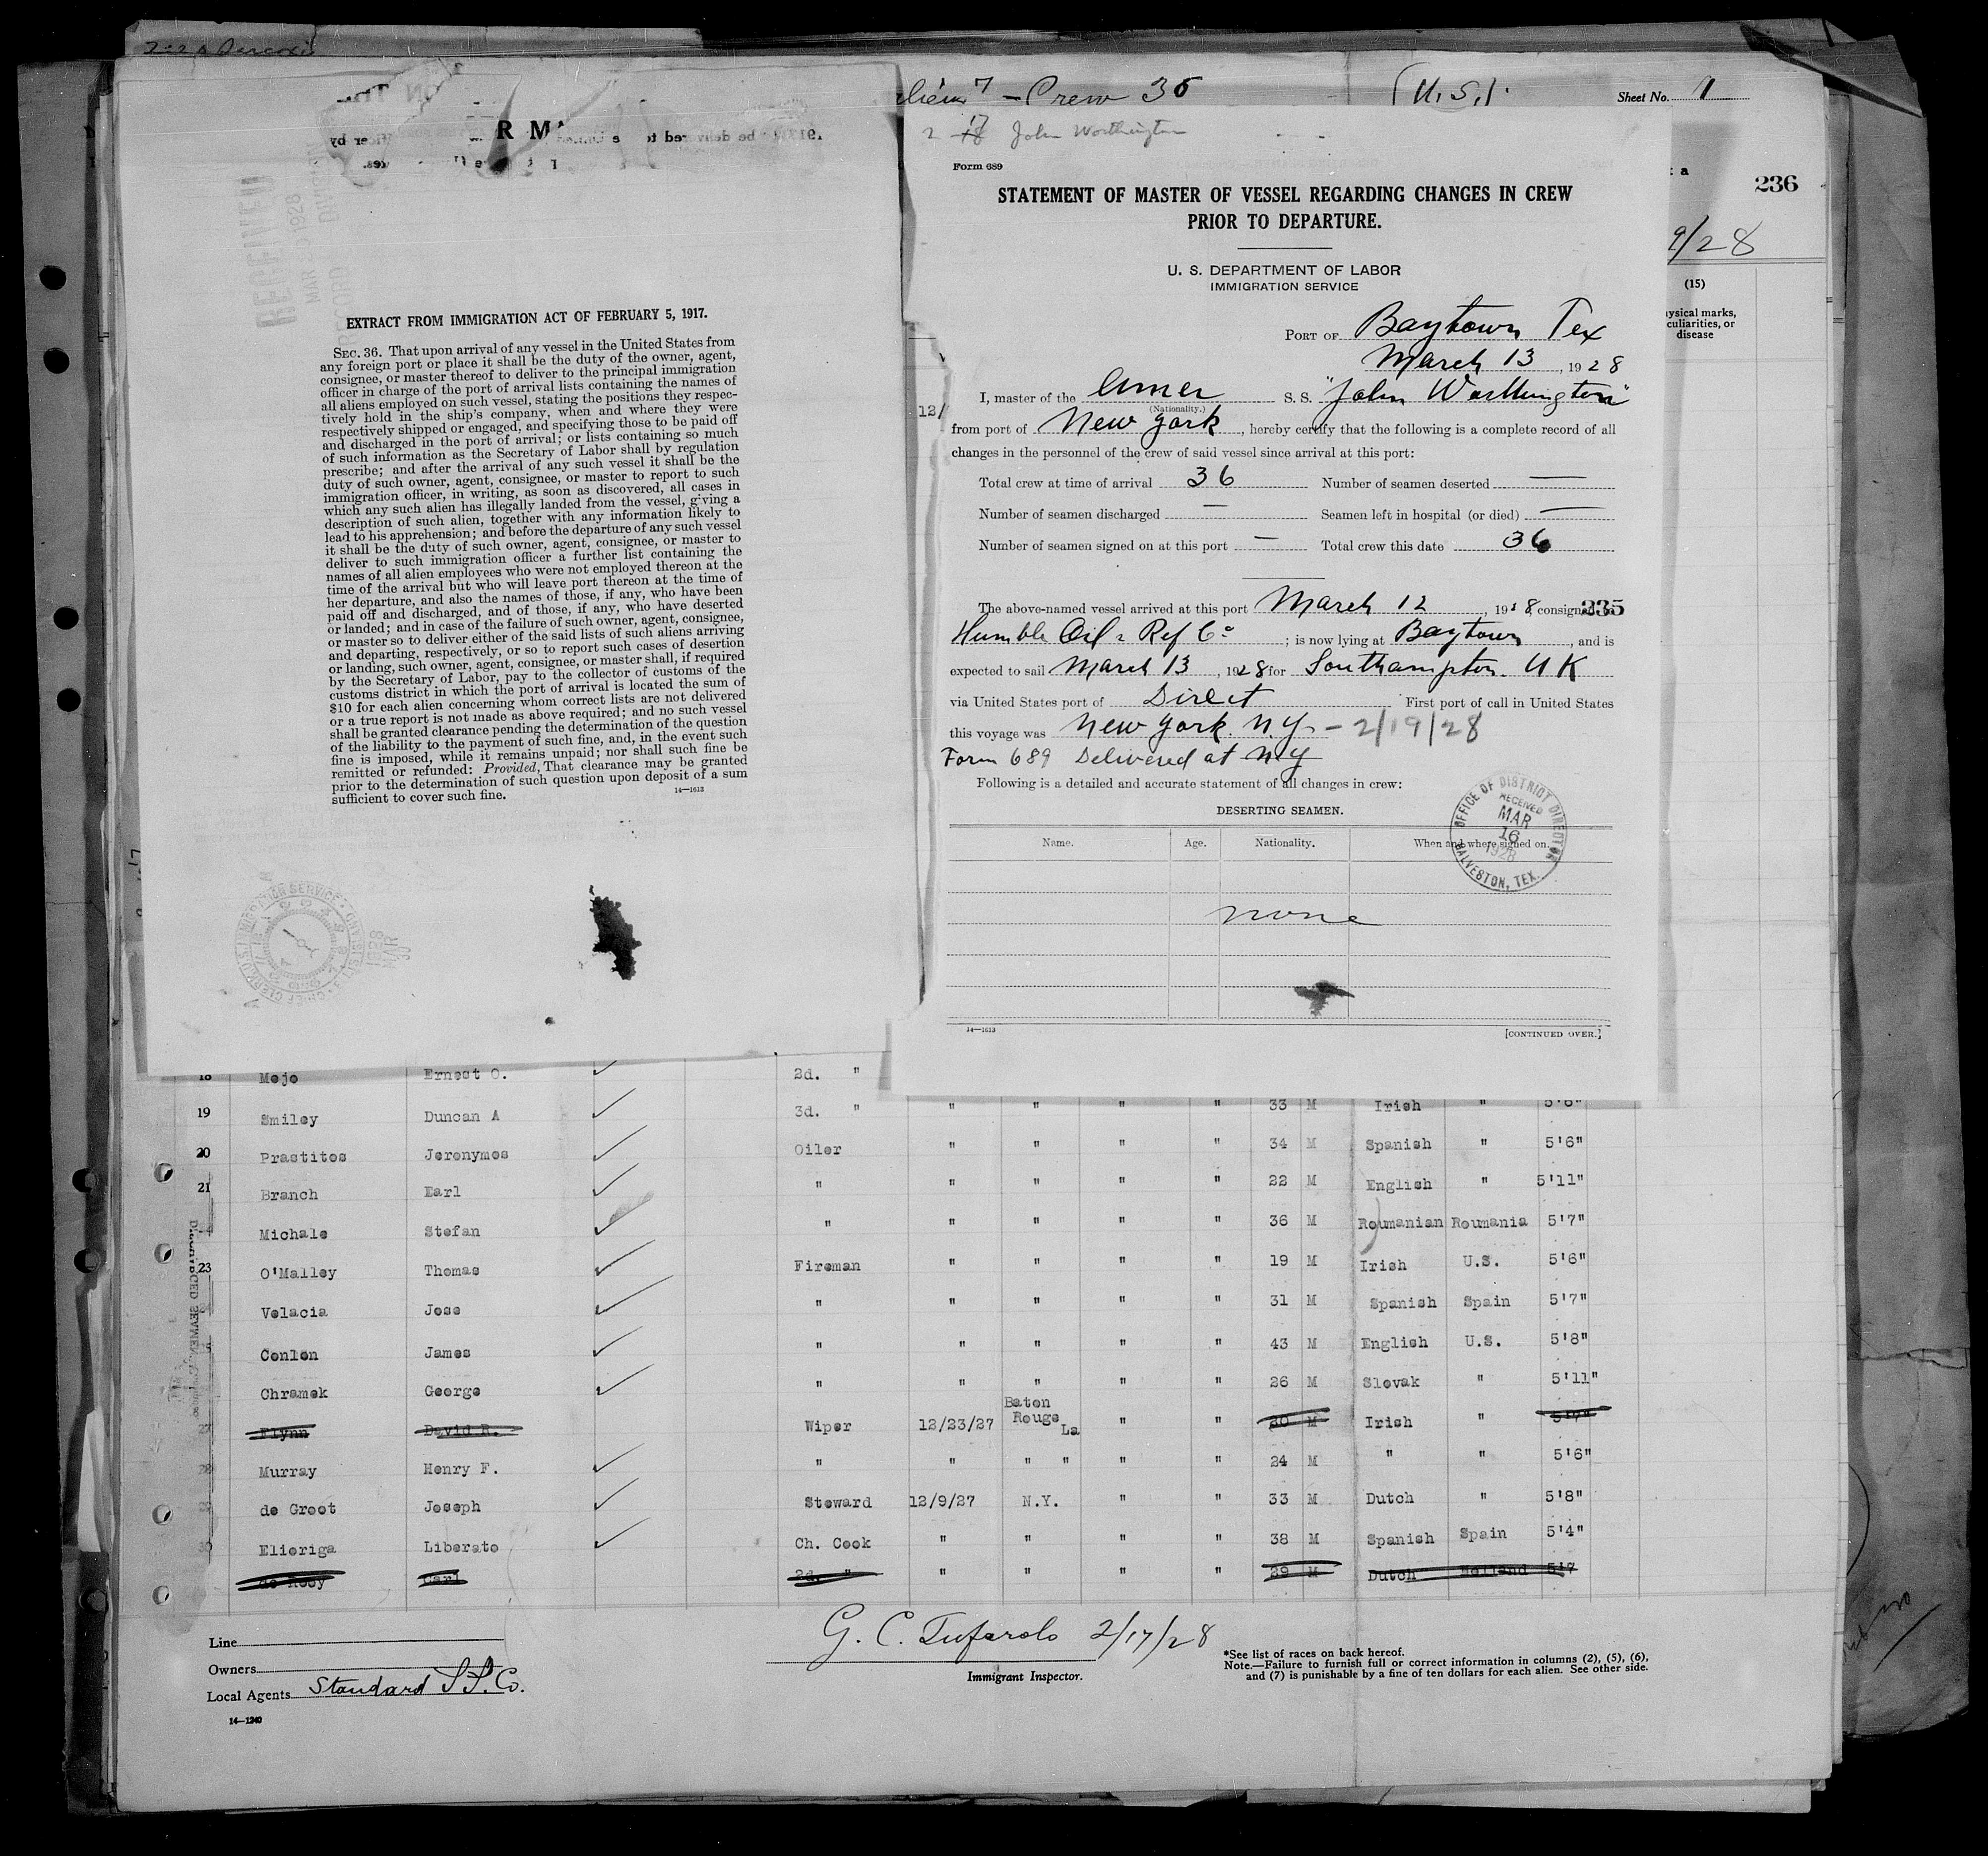 Crew 36 (U.S.) Sheet No. 1
236
9/28
(15)
disease
EXTRACT FROM IMMIGRATION ACT OF FEBRUARY 5, 1917.
SEC. 36. That upon arrival of any vessel in the United States from
any foreign port or place it shall be the duty of the owner, agent,
consignee, or master thereof to deliver to the principal immigration
officer in charge of the port of arrival lists containing the names of
all aliens employed on such vessel, stating the positions they respec-
tively hold in the ship's company, when and where they were
respectively shipped or engaged, and specifying those to be paid off
and discharged in the port of arrival; or lists containing so much
of such information as the Secretary of Labor shall by regulation
prescribe; and after the arrival of any such vessel it shall be the
duty of such owner, agent, consignee, or master to report to such
immigration officer, in writing, as soon as discovered, all cases in
which any such alien has illegally landed from the vessel, giving a
description of such alien, together with any information likely to
lead to his apprehension; and before the departure of any such vessel
it shall be the duty of such owner, agent, consignee, or master to
deliver to such immigration officer a further list containing the
names of all alien employees who were not employed thereon at the
time of the arrival but who will leave port thereon at the time of
her departure, and also the names of those, if any, who have been
paid off and discharged, and of those, if any, who have deserted
or landed; and in case of the failure of such owner, agent, consignee,
or master so to deliver either of the said lists of such aliens arriving
and departing, respectively, or so to report such cases of desertion
or landing, such owner, agent, consignee, or master shall, if required
by the Secretary of Labor, pay to the collector of customs of the
customs district in which the port of arrival is located the sum of
$10 for each alien concerning whom correct lists are not delivered
or a true report is not made as above required; and no such vessel
shall be granted clearance pending the determination of the question
of the liability to the payment of such fine, and, in the event such
fine is imposed, while it remains unpaid; nor shall such fine be
remitted or refunded: Provided, That clearance may be granted
prior to the determination of such question upon deposit of a sum
sufficient to cover such fine.
14—1613
2 17 John Worthington
Form 689
STATEMENT OF MASTER OF VESSEL REGARDING CHANGES IN CREW
PRIOR TO DEPARTURE.
U. S. DEPARTMENT OF LABOR
IMMIGRATION SERVICE
PORT OF Baytown Tex
March 13, 1928
I, master of the Amer S. S. "John Worthington"
(Nationality.)
from port of New York, hereby certify that the following is a complete record of all
changes in the personnel of the crew of said vessel since arrival at this port:
Total crew at time of arrival 36 Number of seamen deserted —
Number of seamen discharged — Seamen left in hospital (or died) —
Number of seamen signed on at this port — Total crew this date 36
The above-named vessel arrived at this port March 12, 1928 235
Humble Oil & Ref Co; is now lying at Baytown, and is
expected to sail March 13, 1928 for Southampton. U K
via United States port of Direct First port of call in United States
this voyage was New York. N.Y. - 2/19/28
Form 689 Delivered at NY
Following is a detailed and accurate statement of all changes in crew:
OFFICE OF DISTRICT DIRECTOR
RECEIVED
MAR
16
1928
GALVESTON, TEX.
DESERTING SEAMEN.
Name. Age. Nationality. When and where signed on.
none
14—1613 [CONTINUED OVER.]
18 Mojo Ernest O. 2d. "
19 Smiley Duncan A 3d. " " " " " 33 M Irish " 5'6"
20 Prastitos Jeronymos Oiler " " " " 34 M Spanish " 5'6"
21 Branch Earl " " " " " 22 M English " 5'11"
Michale Stefan " " " " " 36 M Roumanian Roumania 5'7"
23 O'Malley Thomas Fireman " " " " 19 M Irish U.S. 5'6"
Velacia Jose " " " " " 31 M Spanish Spain 5'7"
Conlon James " " " " " 43 M English U.S. 5'8"
Chramek George " " " " " 26 M Slovak " 5'11"
27 Flynn David R. Wiper 12/23/27 Baton Rouge La " " 20 M Irish " 5'7"
28 Murray Henry F. " " " " " " 24 M " " 5'6"
29 de Groot Joseph Steward 12/9/27 N.Y. " " 33 M Dutch " 5'8"
30 Elioriga Liberato Ch. Cook " " " " 38 M Spanish Spain 5'4"
de Rooy Carl 2d. " " " " " 29 M Dutch Holland 5'7
Line
Owners
Local Agents Standard S.S. Co.
14—1240
G. C. Tufarolo 2/17/28
Immigrant Inspector.
*See list of races on back hereof.
Note.—Failure to furnish full or correct information in columns (2), (5), (6),
and (7) is punishable by a fine of ten dollars for each alien. See other side.